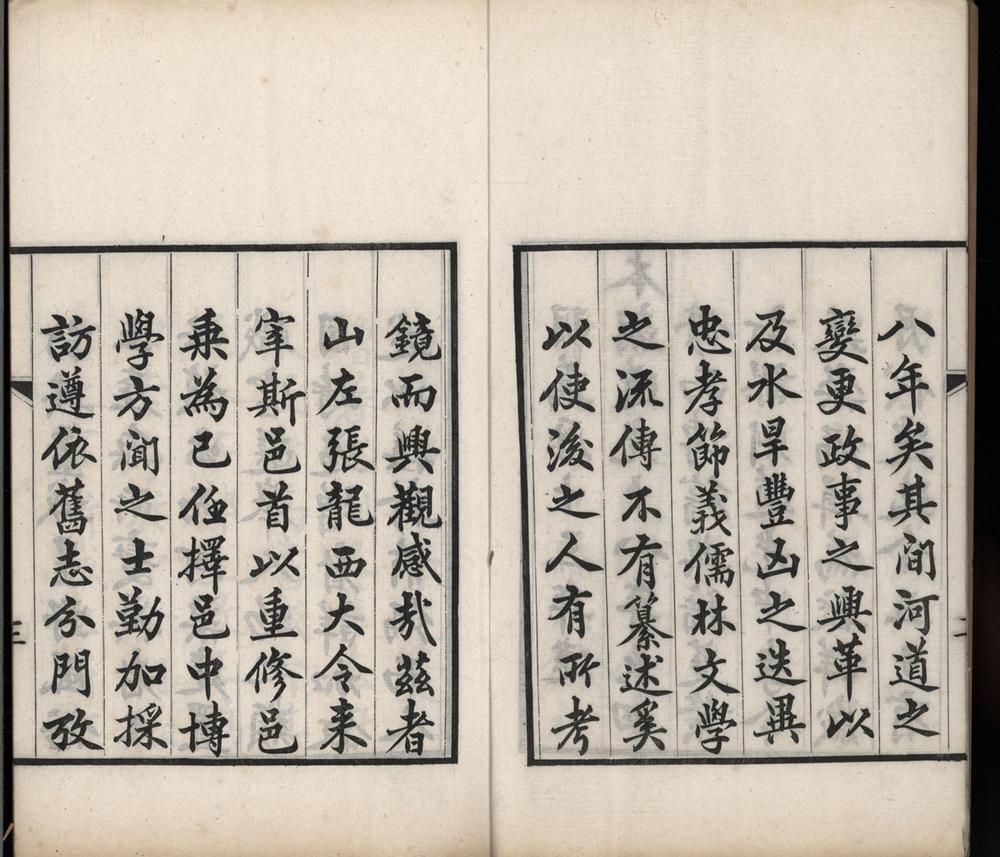 八年矣其間河道之
變更政事之興革以
及水旱豐凶之迭異
忠孝節義儒林文學
之流傳不有纂述奚
以使後之人有所考
鏡而興觀感㦲茲者
山左張龍西大令来
宰斯邑首以重修邑
乗為已任擇邑中博
學方聞之士勤加採
訪遵依舊志分門攷
三